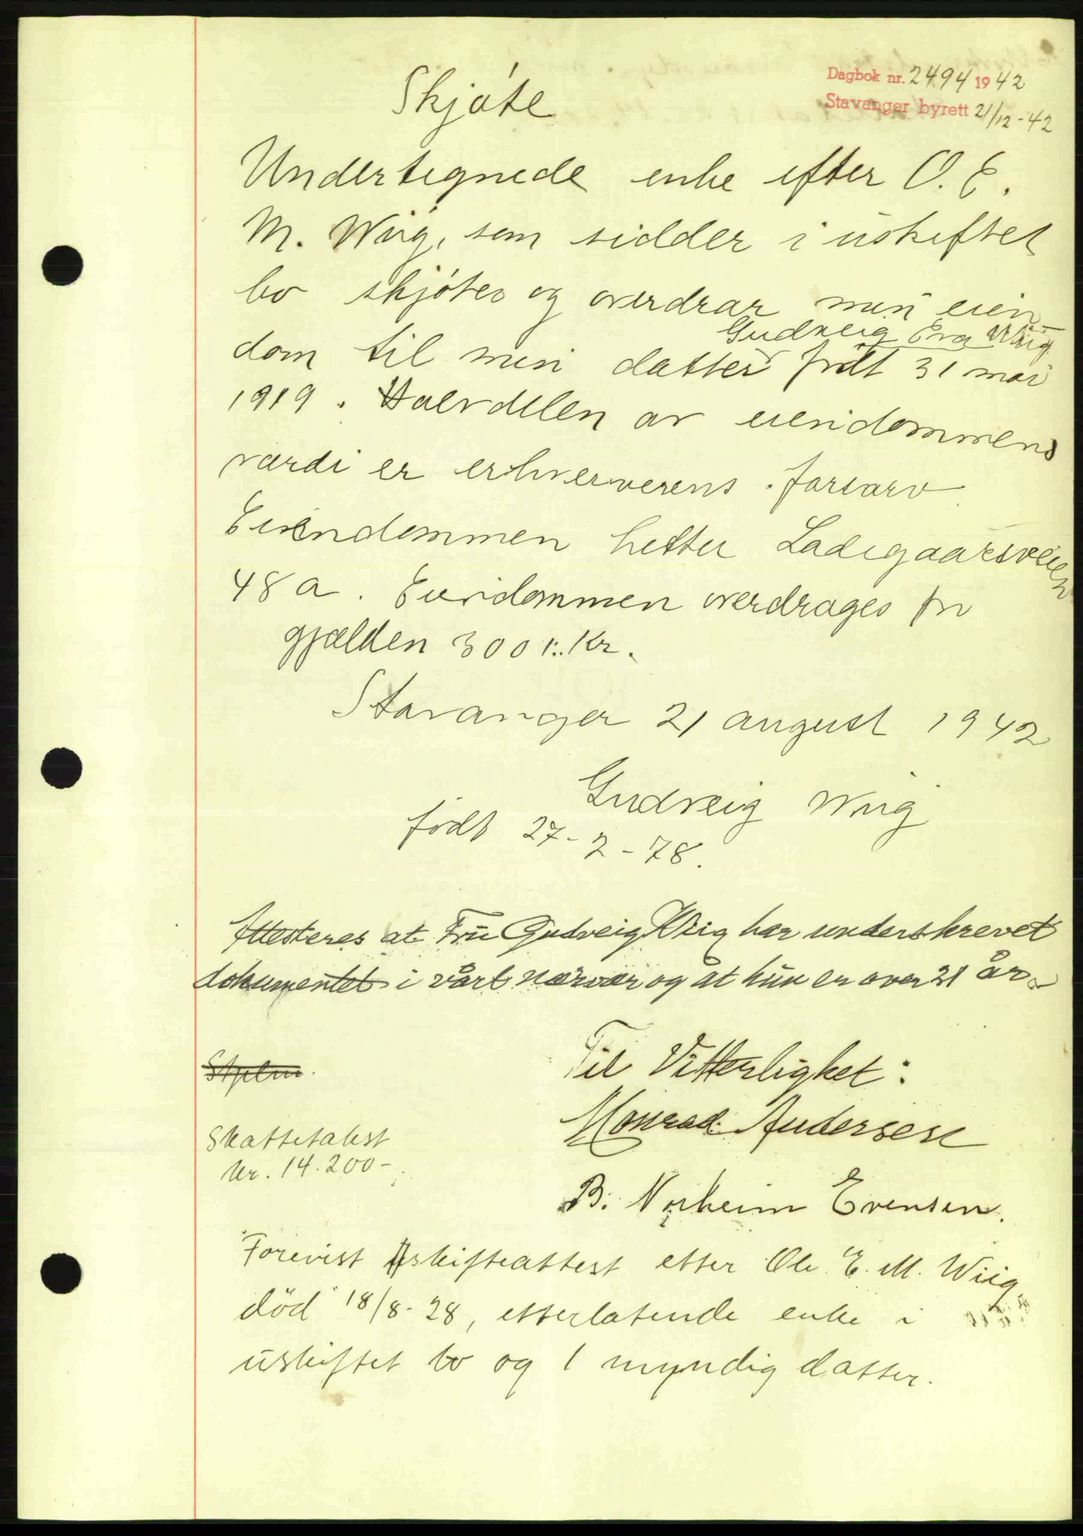 Dagbok nr. 2494 1942
Stavanger byrett 21/12-42
Skjøte
Undertegnede enke efter O. E.
M. Wiig, som sidder i uskiftet
bo skjøtes og overdrar min eien
Gudveig Eva Wiig
dom til min datter født 31 mai
1919. Halvdelen av eiendommens
værdi er erhververens forlarv
Eiendommen hetter Ladegaarsveien
48 a. Eiendommen overdrages for
gjælden 3001: Kr.
Stavanger 21 august 1942
Gudveig Wiig
født 27-2-78.
Attesteres at Fru Gudveig Wiig har underskrevet
dokumentet i vårt nærvær og at hun er over 21 år.
Til Vitterligket:
Monrad Andersen
Skattetakst
kr. 14.200-
B. Norheim Evensen.
Forevist Uskifteattest etter Ole E. M. Wiig
død 18/8-28, etterlatende enke i
uskiftet bo og 1 myndig datter.